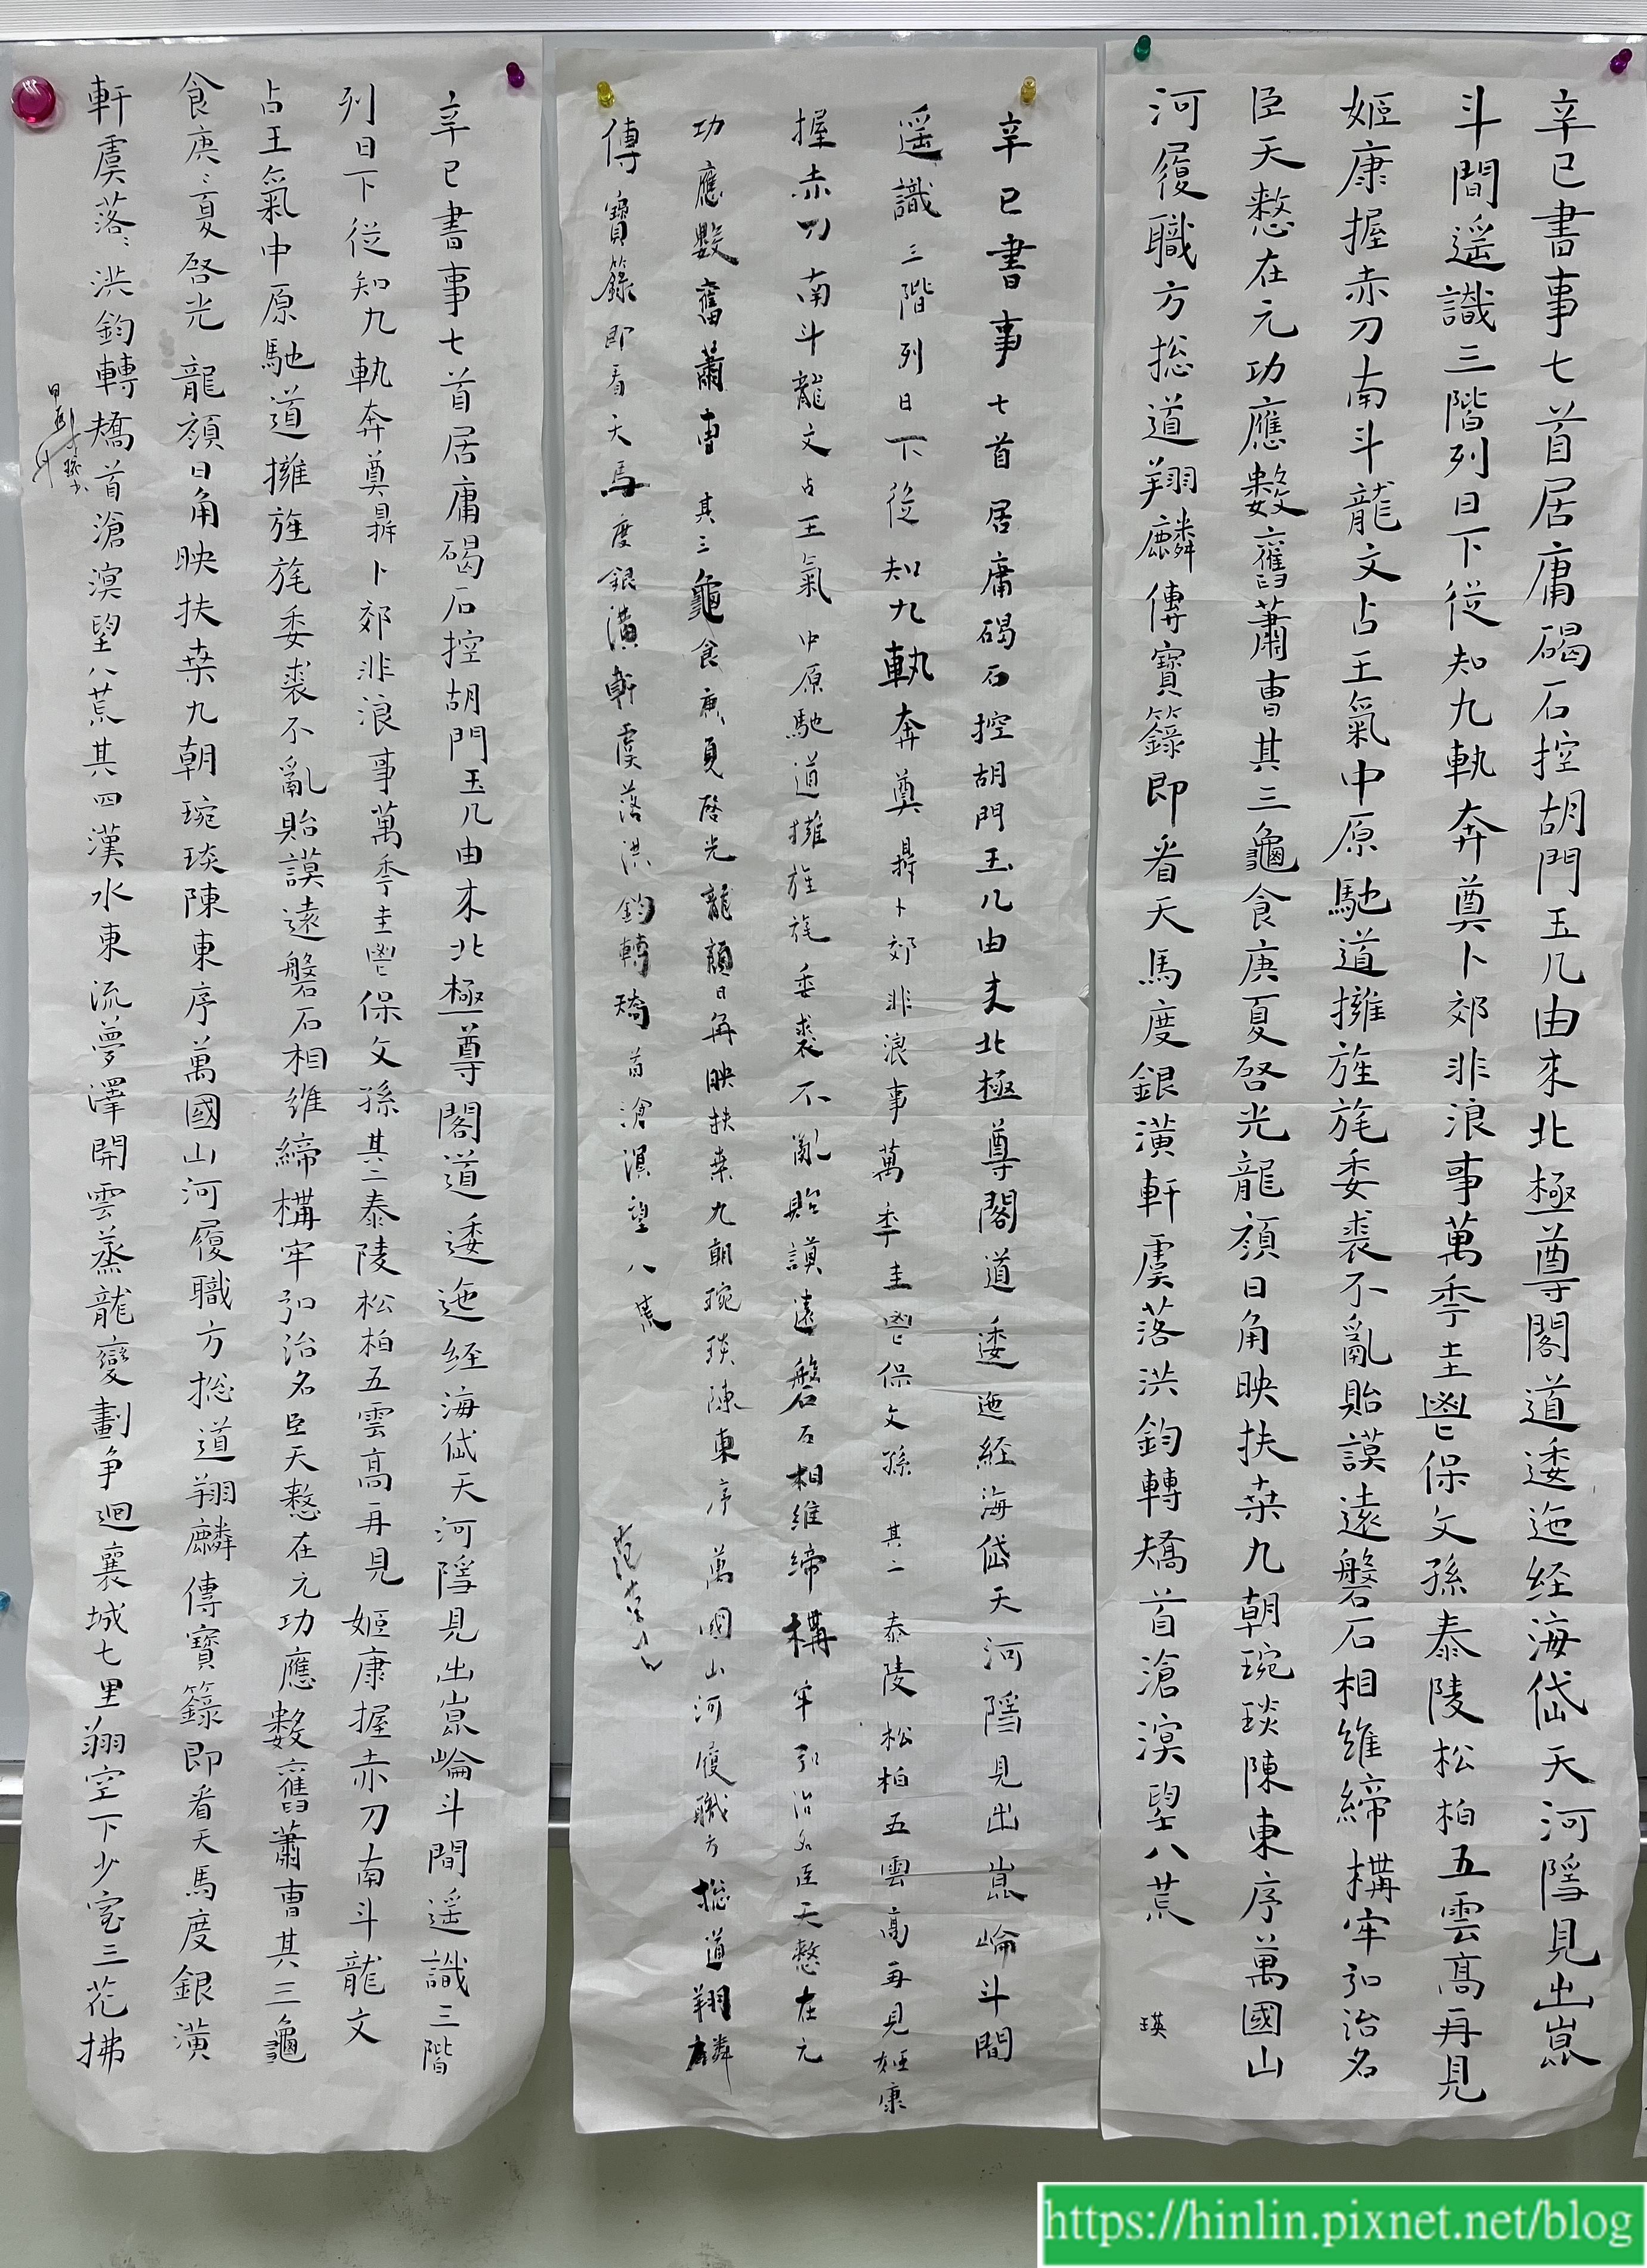 辛已書事七首居庸碣石控胡門玉几由來北極尊閣道逶迤経海岱天河隱見出崑
斗間遥識三階列日下従知九軌奔奠卜郊非浪事萬季圭鬯保文孫泰陵松柏五雲髙再見
姬康握赤刀南斗龍文占王氣中原馳道擁旌旄委裘不亂貽謨遠磐石相維締構牢弘治名
臣天憖在元功應數舊蕭曺其三龜食庚夏啓光龍顔日角映扶桒九朝琬琰陳東序萬國山
河履職方揔道翔麟傳寶籙即看天馬度銀潢軒虞落洪鈞轉矯首滄溟望八荒
瑛
辛已書事七首居庸碣石控胡門玉几由来北極尊閣道逶迤経海岱天河隱見出崑崘斗間
遥識三階列日下従知九軌奔奠鼎卜郊非浪事萬季圭鬯保文孫其二泰陵松柏五雲髙再見姬康
握赤刀南斗龍文占王氣中原馳道擁旌旄委裘不亂貽謨遠磐石相維締構牢弘治名臣天憖在元
功應數舊蕭曺其三龜食庚夏啓光龍顔日角映扶桒九朝琬琰陳東序萬國山河履職方揔道翔麟
傳寶籙即看天馬度銀潢軒虞落洪鈞轉矯首滄溟望八荒
辛已書事七首居庸碣石控胡門玉几由來北極尊閣道逶迤経海岱天河隱見出崑崘斗間遥識三階
列日下従知九軌奔奠鼎卜郊非浪事萬季圭鬯保文孫其二泰陵松柏五雲髙再見姬康握赤刀南斗龍文
占王氣中原馳道擁旌旄委裘不亂貽謨遠磐石相維締構牢弘治名臣天憖在元功應數舊蕭曺其三龜
食庚〻夏啓光龍顔日角映扶桒九朝琬琰陳東序萬國山河履職方揔道翔麟傳寶籙即看天馬度銀潢
軒虞落〻洪鈞轉矯首滄溟望八荒其四漢水東流夢澤開雲蒸龍變劃争迴襄城七里翔空下少室三花拂
https://hinlin.pixnet.net/blog